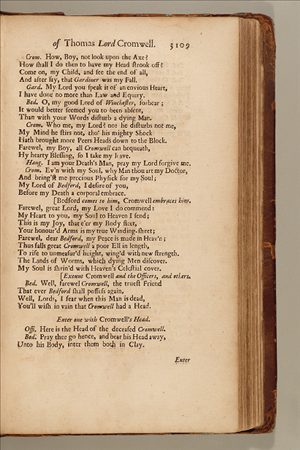 of Thomas Lord Cromwell. 3109
Crom. How, Boy, not look upon the Axe?
How shall I do then to have my Head strook off?
Come on, my Child, and see the end of all,
And after say, that Gardiner was my Fall.
Gard. My Lord you speak it of an envious Heart,
I have done no more than Law and Equity.
Bed. O, my good Lord of Winchester, forbear;
It would better seemed you to been absent,
Than with your Words disturb a dying Man.
Crom. Who me, my Lord? no: he disturbs not me,
My Mind he stirs not, tho' his mighty Shock
Hath brought more Peers Heads down to the Block.
Farewel, my Boy, all Cromwell can bequeath,
My hearty Blessing, so I take my leave.
Hang. I am your Death's Man, pray my Lord forgive me.
Crom. Ev'n with my Soul, why Man thou art my Doctor,
And bring'st me precious Physick for my Soul;
My Lord of Bedford, I desire of you,
Before my Death a corporal embrace.
[Bedford comes to him, Cromwell embraces him.
Farewel, great Lord, my Love I do commend:
My Heart to you, my Soul to Heaven I send;
This is my Joy, that e'er my Body fleet,
Your honour'd Arms is my true Winding-sheet;
Farewel, dear Bedford, my Peace is made in Heav'n;
Thus falls great Cromwell a poor Ell in length,
To rise to unmeasur'd height, wing'd with new strength.
The Lands of Worms, which dying Men discover.
My Soul is shrin'd with Heaven's Celestial cover.
[Exeunt Cromwell and the Officers, and others.
Bed. Well, farewel Cromwell, the truest Friend
That ever Bedford shall possess again.
Well, Lords, I fear when this Man is dead,
You'll wish in vain that Cromwell had a Head.
Enter one with Cromwell's Head.
Offi. Here is the Head of the deceased Cromwell.
Bed. Pray thee go hence, and bear his Head away,
Unto his Body, inter them both in Clay.
Enter